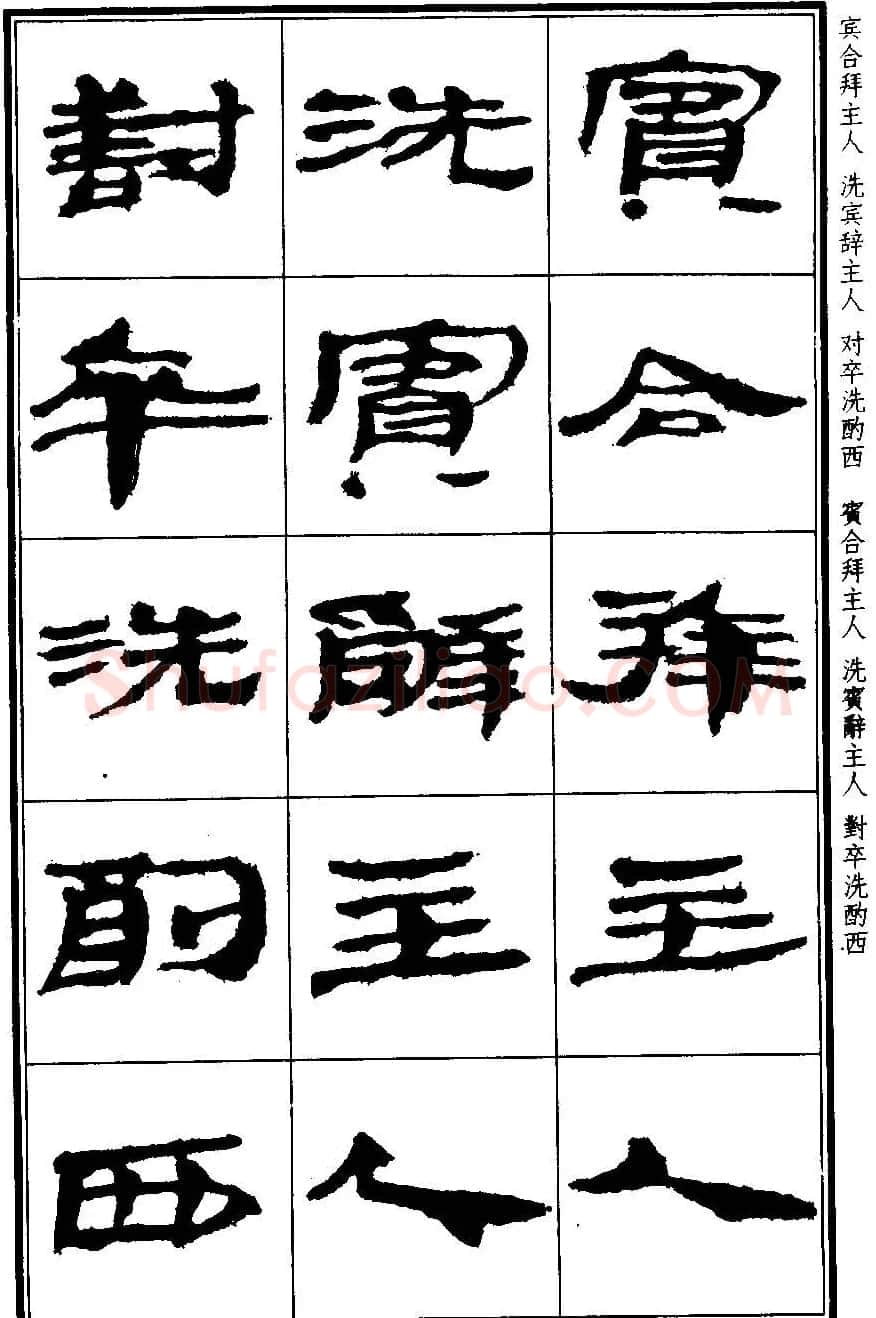 宾合拜主人 洗宾辞主人 对卒洗酌西 賓合拜主人 洗賓辭主人 對卒洗酌西
賓合拜主人
洗賓辭主人
對卒洗酌西
Shufaziliao.COM